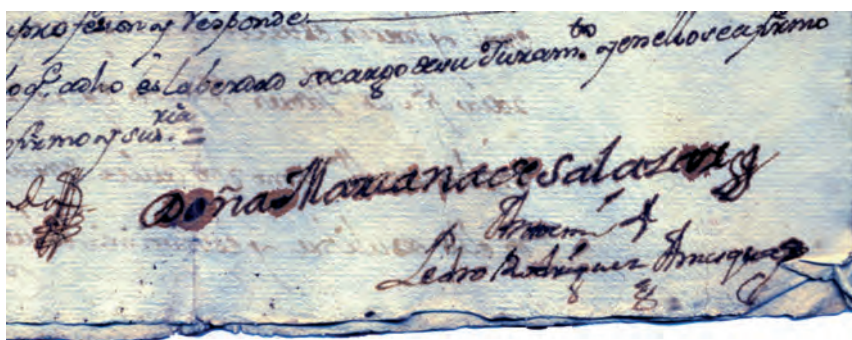 su profesion y responde
lo q.e a dho es la berdad so cargo de su Juram.to y en ello se afirmo
y firmo y su s.ria =
Doña Mariana de Salazar
Ante mi
Pedro Rodriguez